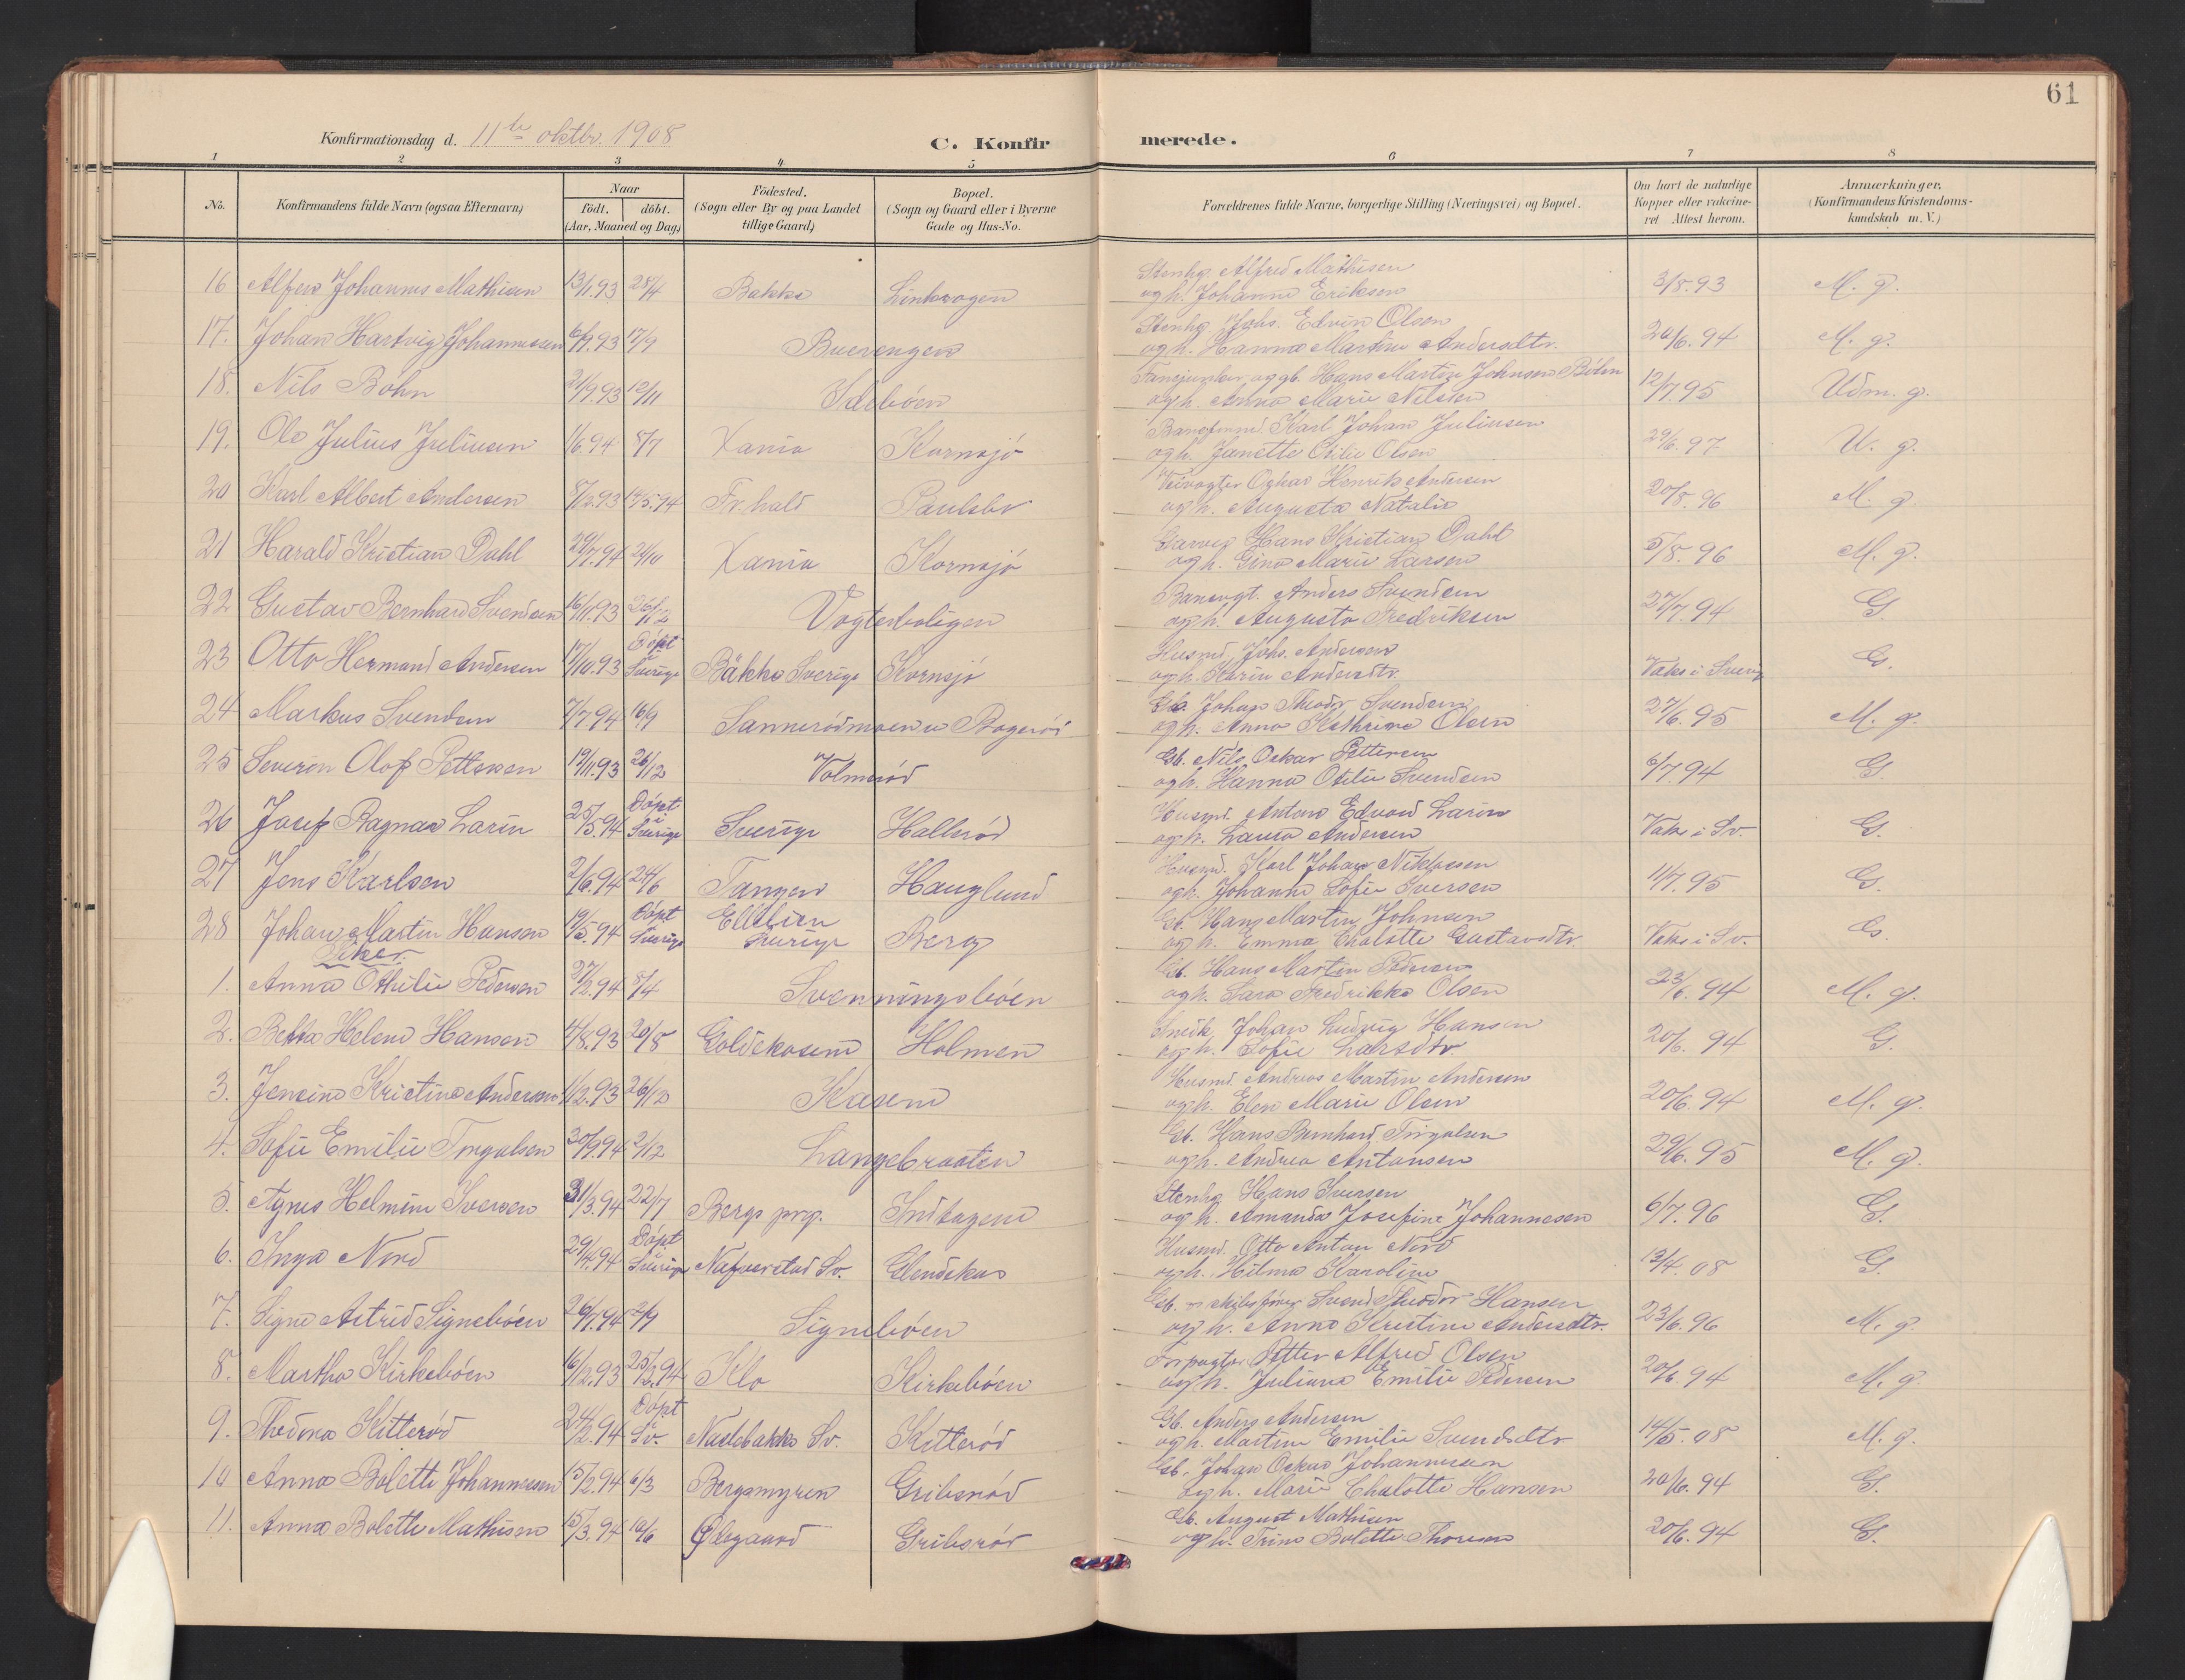 61
Konfirmationsdag d. 11te oktbr. 1908
C. Konfirmerede.
1 2 3 4 5 6 7 8
No.
Konfirmandens fulde Navn (ogsaa Efternavn)
Naar
födt. döbt.
(Aar, Maaned og Dag)
Födested.
(Sogn eller By og paa Landet
tillige Gaard)
Bopæl.
(Sogn og Gaard eller i Byerne
Gade og Hus-No.
Forældrenes fulde Navne, borgerlige Stilling (Næringsvei) og Bopæl.
Om havt de naturlige
Kopper eller vakcine-
ret Attest herom.
Anmærkninger.
(Konfirmandens Kristendoms-
kundskab m. V.)
Stenhg. Alfred Mathisen
16 Alfred Johannes Mathisen 13/1.93 28/4 Bakke og h. Johanne Eriksen 3/8.93 M. g.
Stenhg. Johs. Edvin Olsen
17. Johan Hartvig Johannessen 6/9.93 17/9 Buerengen og h. Hanna Martine Andersdtr. 20/6.94 M. g.
Hans Martin Johnsen Bøhn
18. Nils Bøhn 21/9.93 12/11 Idebøen og h. Anna Marie Nilsen 12/7.95 Udm. g.
Karl Johan Juliusen
19. Ole Julius Juliusen 1/6.94 8/7 Xania Kornsjø og h. Janette Otilie Olsen 29/6.97 U. g.
Veivogter Oskar Henrik Andersen
20 Karl Albert Andersen 8/12.93 14/5.94 Fr.hald Paulsbo og h. Augusta Natalie 20/8.96 M. g.
Garver Hans Kristian Dahl
21 Harald Kristian Dahl 29/7.94 21/10 Xania Kornsjø og h. Gina Marie Larsen 5/8.96 M. g.
Banevgt. Anders Svendsen
22 Gustav Bernhard Svendsen 16/11.93 26/12 Vogterboligen og h. Augusta Fredriksen 27/7.94 G.
Husmd. Johs. Andersen
23 Otto Hermand Andersen 17/10.93 Döpt i Sverige Bäkke Sverige Kornsjø og h. Karin Andersdtr. Vaks i Sverig G.
Gb. Johan Theodr Svendsen
24 Markus Svendsen 7/7.94 16/9 Sannerödmoen u Bøgerød og h. Anna Kathrine Olsen 27/6.95 M. g.
Gb. Nils Oskar Pettersen
25 Severin Olof Pettersen 19/11.93 26/12 Volmerød og h. Hanna Otilie Svendsen 6/7.94 G.
Husmd. Anton Edvard Larin
26 Josef Ragnar Larin 25/5.94 Döpt i Sverige Sverige Hallerød og h. Laura Andersen Vaks i Sv. G.
Husmd. Karl Johan Niklasen
27 Jens Karlsen 2/6.94 24/6 Tangen Hauglund og h. Johanne Sofie Iversen 11/7.95 G.
Gb. Hans Martin Johnsen
28 Johan Martin Hansen 19/5.94 Döpt Sverige Sverige Berg og h. Emma Chalotte Gustavsdtr. Vaks i Sv. G.
Piker
Gb. Hans Martin Pedersen
1. Anna Othilie Pedersen 27/2.94 8/4 Svenningsbøen og h. Sara Fredrikke Olsen 23/6.94 M. g.
Snedk. Johan Ludvig Hansen
2. Betta Helene Hansen 4/8.93 20/8 Holmen og h. Sofie Larsdtr. 20/6.94 G.
Husmd. Andreas Martin Andersen
3. Jensine Kristine Andersen 1/12.93 26/12 Kasene og h. Elen Marie Olsen 20/6.94 M. g.
Gb. Hans Bernhard Torgalsen
4. Sofie Emilie Torgalsen 30/9.94 2/12 Langebraaten og h. Andrea Antonsen 29/6.95 M. g.
Stenhg. Hans Iversen
5. Agnes Helmine Iversen 31/3.94 22/7 Bergs prg. Indtagene og h. Amanda Josefine Johannesen 6/7.96 G.
Husmd. Otto Anton Nord
6. Inga Nord 29/4.94 Döpt i Sverige Nafverstad Sv. Glendekas og h. Hilma Karoline 13/4.08 G.
Gb. Svend Theodor Hansen
7. Signe Astrid Signebøen 26/7.94 2/9 Signebøen og h. Anna Kristine Andersdtr. 23/6.96 M. g.
Forpagtr. Petter Alfred Olsen
8. Martha Kirkebøen 16/12.93 25/2.94 Klo Kirkebøen og h. Juliane Emilie Pedersen 20/6.94 M. g.
Gb. Anders Andersen
9. Thedina Kitterød 24/2.94 Döpt Sv. Naslebakke Sv. Kitterød og h. Martine Emilie Svendsdtr. 14/5.08 M. g.
Gb. Johan Oskar Johannessen
10 Anna Bolette Johannessen 15/2.94 6/3 Bergsmyren Gribsrød og h. Marie Chalotte Hansen 20/6.94 G.
Gb. August Mathisen
11. Anna Bolette Mathisen 15/3.94 10/6 Ødegaard Gribsrød og h. Trine Bolette Thoresen 20/6.94 G.